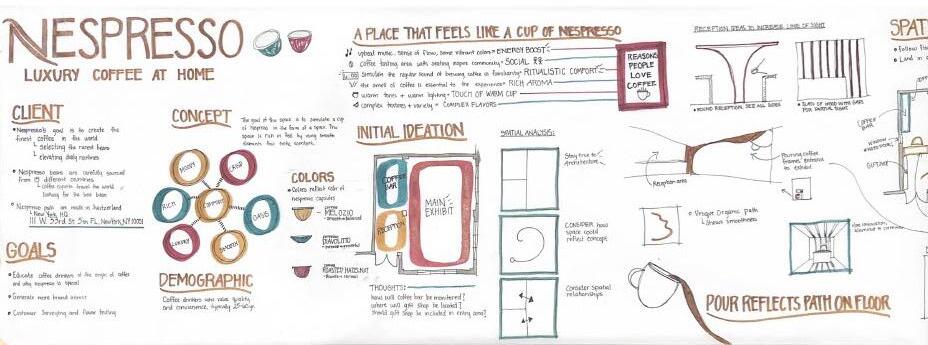 NESPRESSO
LUXURY COFFEE AT HOME
CLIENT
• Nespresso's goal is to create the
finest coffee in the world
↳ selecting the rarest beans
↳ elevating daily routines
• Nespresso beans are carefully sourced
from 15 different countries
↳ coffee experts travel the world
looking for the best bean
• Nespresso pods are made in Switzerland
• New York, HQ
111 W. 33rd St 5th FL, New York, NY 10001
GOALS
• Educate coffee drinkers of the origin of coffee
and why nespresso is special
• Generate more brand interest
• Customer Surveying and flavor testing
CONCEPT
The goal of the space is to simulate a cup
of nespresso in the form of a space. The
space is rich in
RICH
LUXURY
SMOOTH
COMFORT
DEMOGRAPHIC
Coffee drinkers who value quality
and convenience, typically
COLORS
• Colors reflect color of
nespresso capsules
MELOZIO
DIAVOLITTO
ROASTED HAZELNUT
A PLACE THAT FEELS LIKE A CUP OF NESPRESSO
upbeat music, sense of flow, some vibrant colors = ENERGY BOOST
coffee tasting area with seating inspires community = SOCIAL
simulate the regular found of brewing coffee is familiarity = RITUALISTIC COMFORT
the smell of coffee is essential to the experience = RICH AROMA
warm tones + warm lighting = TOUCH OF WARM CUP
complex textures + variety = COMPLEX FLAVORS
REASONS
PEOPLE
LOVE
COFFEE
INITIAL IDEATION
COFFEE
BAR
RECEPTION
MAIN
EXHIBIT
THOUGHTS:
how will coffee bar be monitored?
where will gift shop be located?
should gift shop be included in entry area?
SPATIAL ANALYSIS:
Stay true to
Architecture
CONSIDER how
space could
reflect concept
Consider Spatial
relationships
RECEPTION IDEAS TO INCREASE LINE OF SIGHT
• ROUND RECEPTION, SEE ALL SIDES
• SLATS OF WOOD WITH GAPS
FOR PARTIAL SIGHT
Reception area
Pouring coffee
frames entrance
to exhibit
• Unique Organic path
↳ Shows smoothness
POUR REFLECTS PATH ON FLOOR
SPAT
• Follow
• Land in
COFFEE
BAR